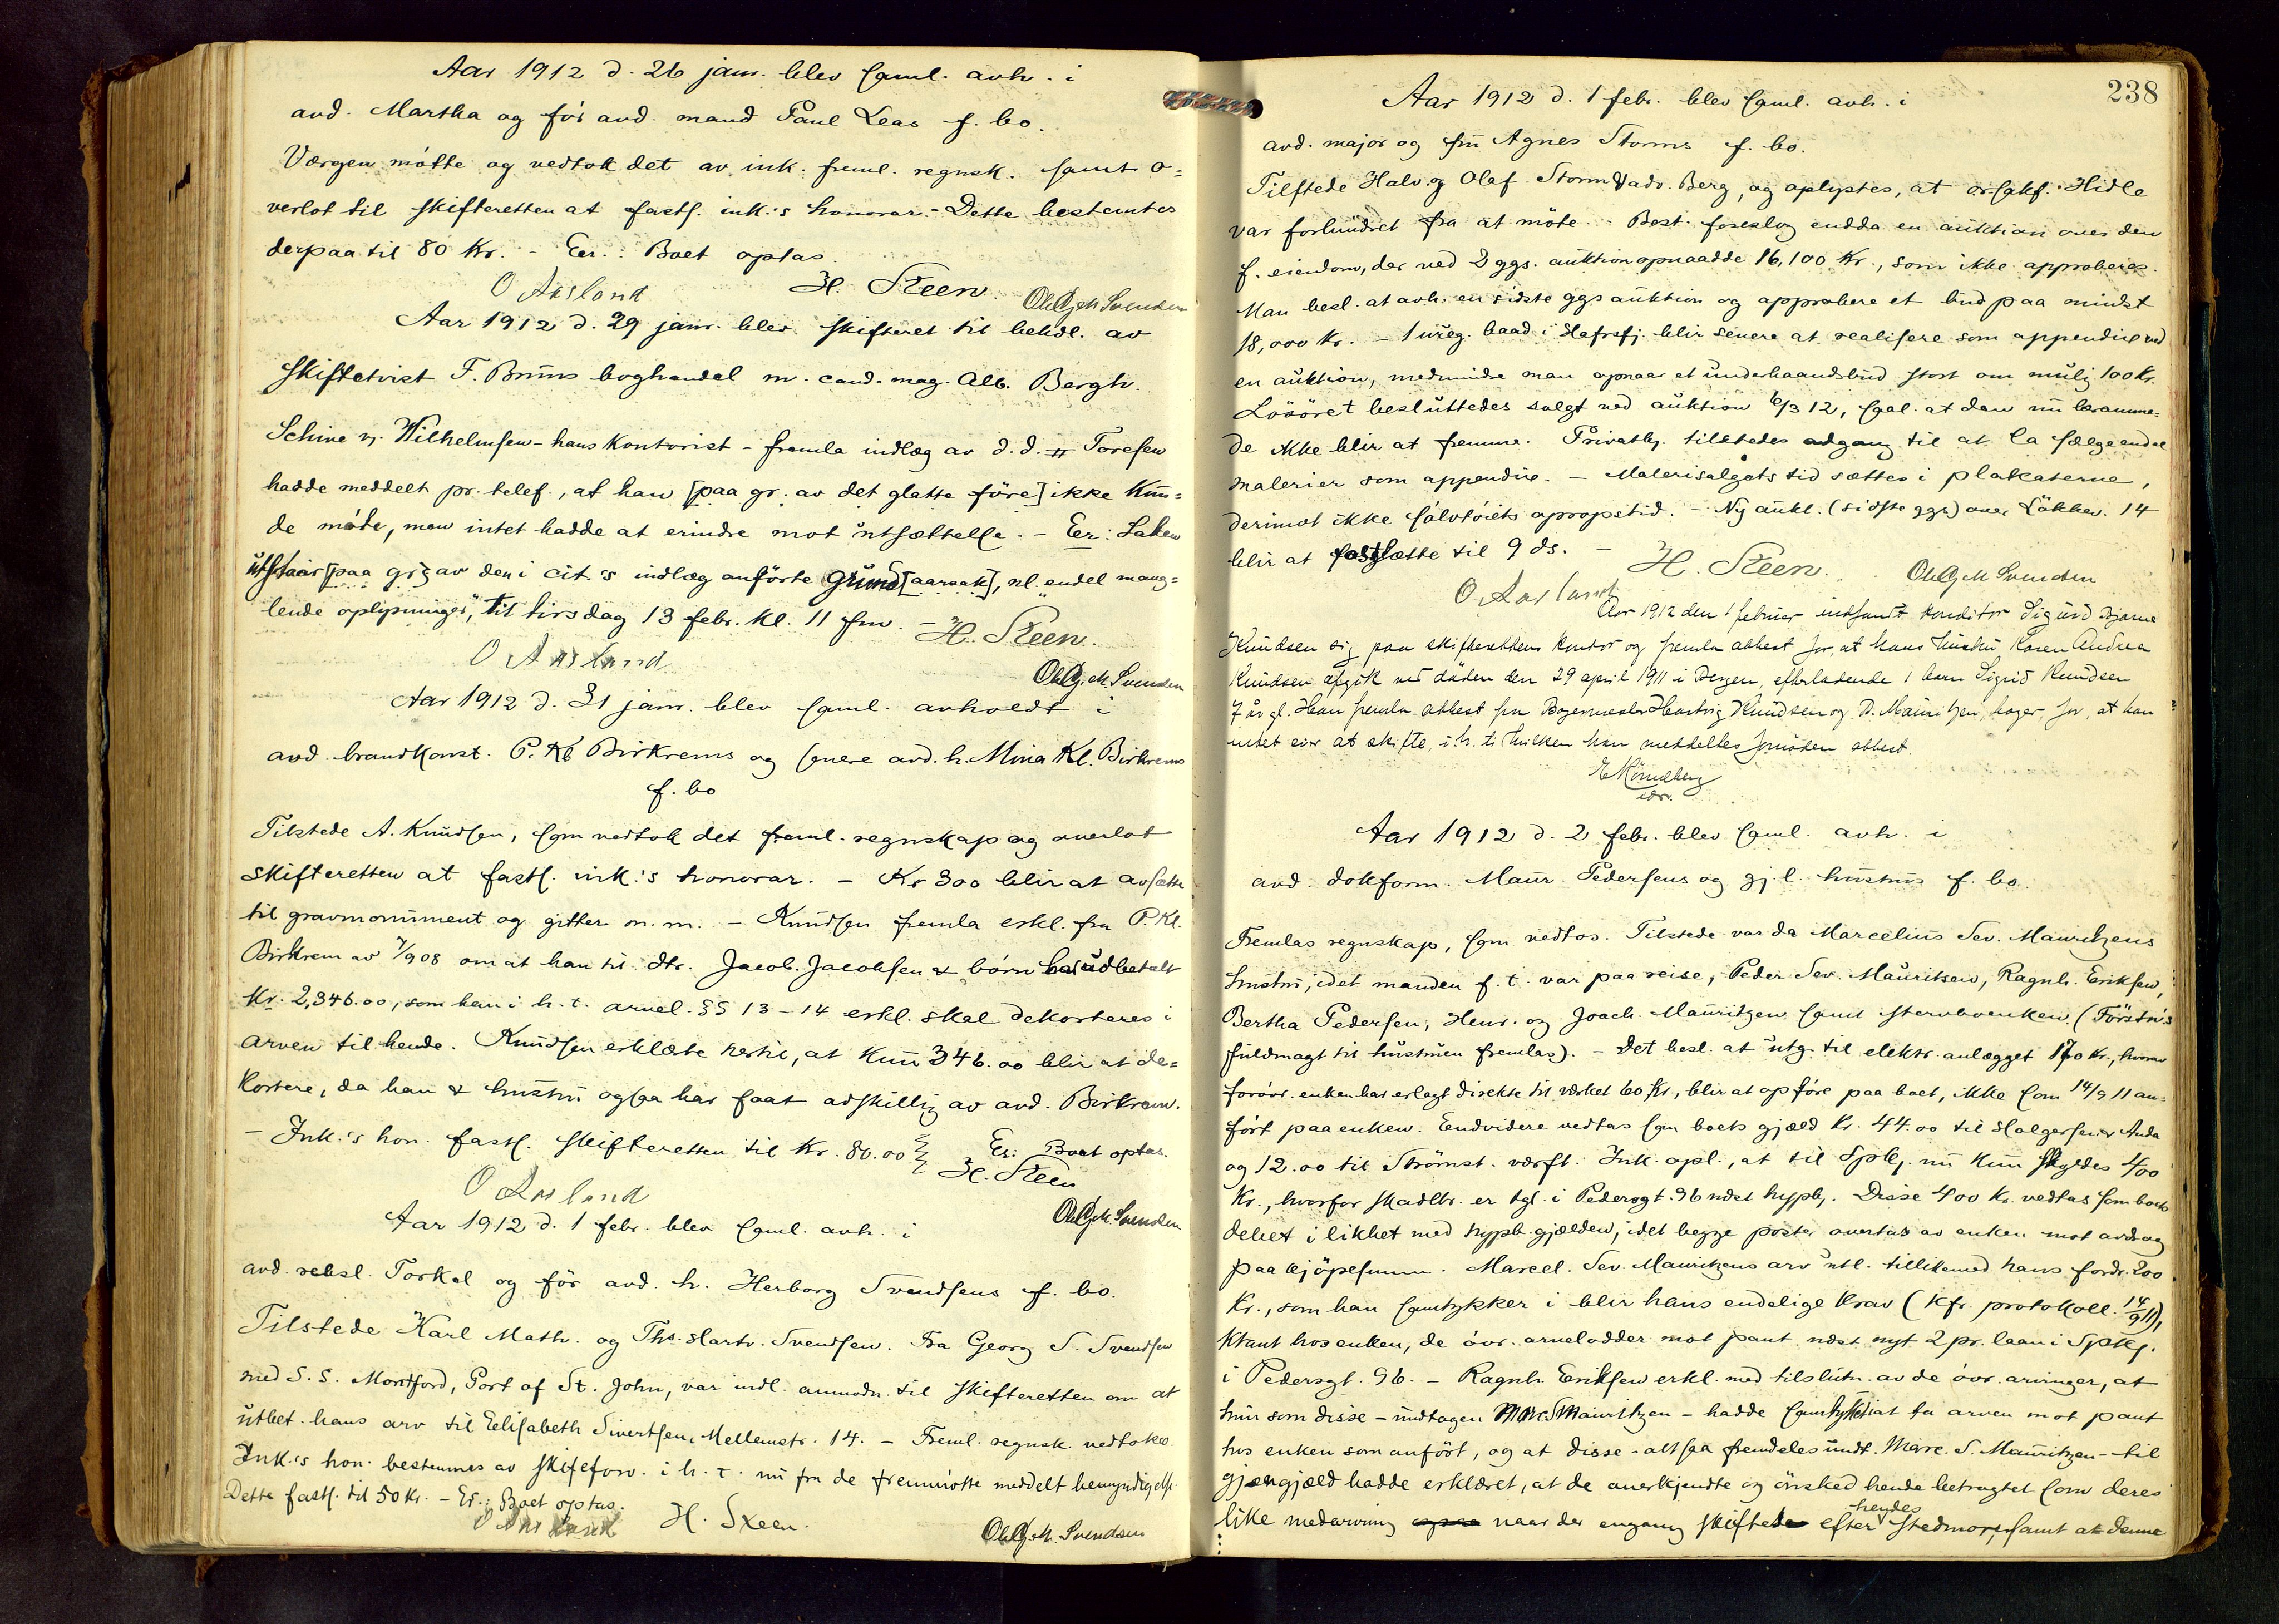 Aar 1912 d. 26 janr. blev saml. avh. i
avd. Martha og før avd. mand Paul Leas f. bo.
Værgen møtte og vedtok det av ink. freml. regnsk. samt o=
verlot til skifteretten at fasts. ink.'s honorar. - Dette bestemtes
derpaa til 80 Kr. - Eer.: Boet optas.
O Aasland H. Steen. Ole Gj. M. Svendsen
Aar 1912 d. 29 janr. blev skifteret til behdl. av
skiftetvist F. Bruns boghandel m. cand. mag. Alb. Bergh.
Schiue v. Wilhelmsen - hans Kontorist - fremla indlæg av d.d. # Toresen
hadde meddelt pr. telef., at han [paa gr. av det glatte føre] ikke Kun=
de møte, men intet hadde at erindre mot utsættelse. - Eer: Saken
utstaar [paa gr.] av den i cit.'s indlæg anførte grund [aarsak], nl. "endel mang=
lende oplysninger", til tirsdag 13 febr. kl. 11 fm. - H. Steen.
O Aasland
Ole Gj. M. Svendsen
Aar 1912 d. 31 janr. blev saml. avholdt i
avd. brandkonst. P. Kl. Birkrems og senere avd. h. Mina Kl. Birkrems
f. bo
Tilstede A. Knudsen, som vedtok det freml. regnskap og overlot
skifteretten at fasts. ink.'s honorar. - Kr 300 blir at avsætte
til gravmonument og gitter m. m. - Knudsen fremla erkl. fra P. Kl.
Birkrem av 7/9 08 om at han til dtr. Jacob. Jacobsen & børn har udbetalt
Kr. 2,346.00, som han i h. t. arvel. §§ 13 - 14 erkl. skal dekorteres i
arven til hende. Knudsen erklærte hertil, at Kun 346.00 blir at de=
kortere, da han & hustru ogsaa har faat adskillig av avd. Birkrem.
- Ink.'s hon. fasts. skifteretten til Kr. 80.00 Er: Boet optas.
O Aasland H. Steen
Ole Gj. M. Svendsen
Aar 1912 d. 1 febr. blev saml. avh. i
avd. rebsl. Torkel og før avd. h. Herborg Svendsens f. bo.
Tilstede Karl Math. og Ths. Hartv. Svendsen. Fra Georg S. Svendsen
med S.S. Montford, Port of St. John, var indl. anmodn. til skifteretten om at
utbet. hans arv til Elisabeth Sivertsen, Mellemstr. 14. - Freml. regnsk. vedtokes.
Ink.'s hon. bestemmes av skiftefor. i h. t. nu fra de fremmøtte meddelt bemyndigelse.
Dette fasts. til 50 Kr. - Er.: Boet optas.
O Aasland H. Steen. Ole Gj. M. Svendsen
238
Aar 1912 d. 1 febr. blev saml. avh. i
avd. major og fru Agnes Storms f. bo.
Tilstede Halv. og Olaf Storm & adv. Berg, og oplystes, at orsakf. Hidle
var forhindret fra at møte. - Best. foreslog endda en auktion over den
f. eiendom, der ved 2 ggs. auktion opnaadde 16,100 Kr., som ikke approberes.
Man besl. at avh. en sidste ggs auktion og approbere et bud paa mindst
18,000 Kr. - 1 ureg. baad i Hafrsfj. blir senere at realisere som appendix ved
en auktion, medmindre man opnaar et underhaandsbud stort om mulig 100 Kr.
Løsøret besluttedes solgt ved auktion 6/3 12, saal. at den nu beramme=
de ikke blir at fremme. Privatbj. tilstedes adgang til at la sælge endel
malerier som appendix. - Malerisalgets tid sættes i plakaterne,
derimot ikke sølvtøiets opropstid. - Ny aukt. (sidste ggs) over Løkkev. 14
blir at fastsætte til 9 ds. - H. Steen. Ole Gj. M Svendsen
O Aasland
Aar 1912 den 1 februar indfandt konditor Sigurd Bjarne
Knudsen sig paa skifterettens kontor og fremla attest for, at hans hustru Karen Andrea
Knudsen avgik ved døden den 29 april 1911 i Bergen, efterladende 1 barn Sigrid Knudsen
7 år gl. Han fremla attest fra Bagermester Hartvig Knudsen og D. Mauritzen, bager, for, at han
intet eier at skifte, i h. t. hvilken han meddeltes fornøden attest.
Aar 1912 d. 2 febr. blev saml. avh. i
avd. dokform. Maur. Pedersens og gj. l. hustrus f. bo.
Fremlas regnskap, som vedtos. Tilstede var da Marcelius Sev. Mauritzens
hustru, idet manden f. t. var paa reise, Peder Sev. Mauritsen, Ragnh. Eriksen,
Bertha Pedersen, Henr. og Joach. Mauritzen samt stervboenken. (Førstn's
fuldmagt til hustruen fremlas). - Det besl. at utg. til elektr. anlægget 170 Kr., hvorav
forøvr. enken har erlagt direkte til verket 60 Kr., blir at opføre paa boet, ikke som 14/9 11 an=
ført paa enken. Endvidere vedtas som boets gjæld Kr. 44.00 til Holgersen & Anda
og 12.00 til Strømst. værft. Ink. opl., at til Spbk. nu Kun skyldes 400
Kr., hvorfor skadbr. er tgl. i Pedersgt. 96 næst hypbk. Disse 400 Kr. vedtas som boets
debet i likhet med hypb.gjælden, idet begge poster overtas av enken mot avdrag
paa kjøpesumm. Marcel. Sev. Mauritzens arv utl. tillikemed hans fordr. 200
Kr., som han samtykker i blir hans endelige krav (Kfr. protokoll. 14/9 11),
Ktant hos enken, de øvr. arvelodder mot pant næst nyt 2 pr. laan i Spbk.
i Pedersgt. 96. - Ragnh. Eriksen erkl. med tilslutn. av de øvr. arvinger, at
hun som disse - undtagen Marc. S Mauritzen - hadde samtykket i at ta arven mot pant
hos enken som anført, og at disse - altsaa fremdeles undt. Marc. S. Mauritzen - til
gjengjæld hadde erklæret, at de anerkjendte og ønsked hende betragtet som deres
like medarving naar der engang skiftedes efter hendes stedmor, samt at denne